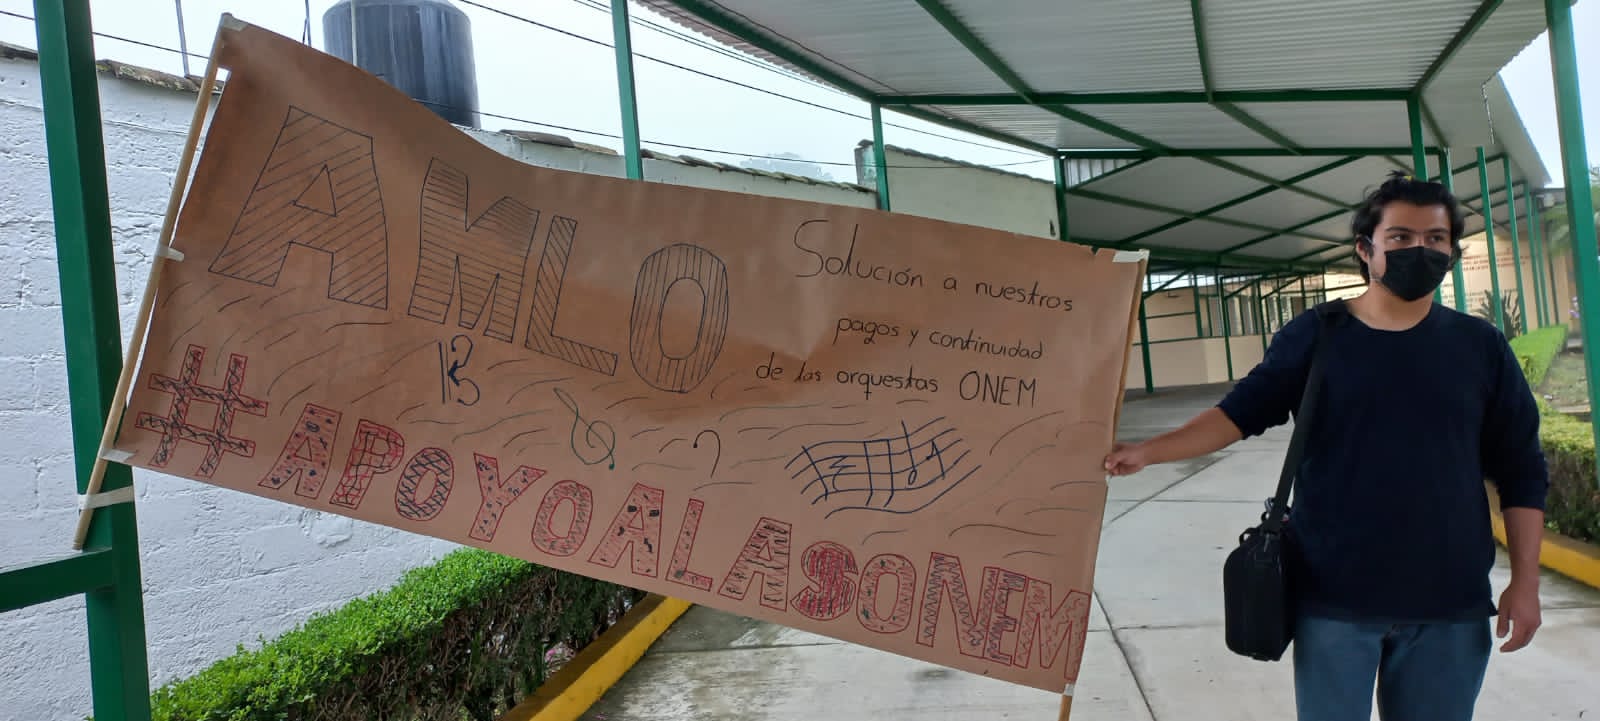 AMLO
Solución a nuestros
pagos y continuidad
de las orquestas ONEM
#APOYOALASONEM